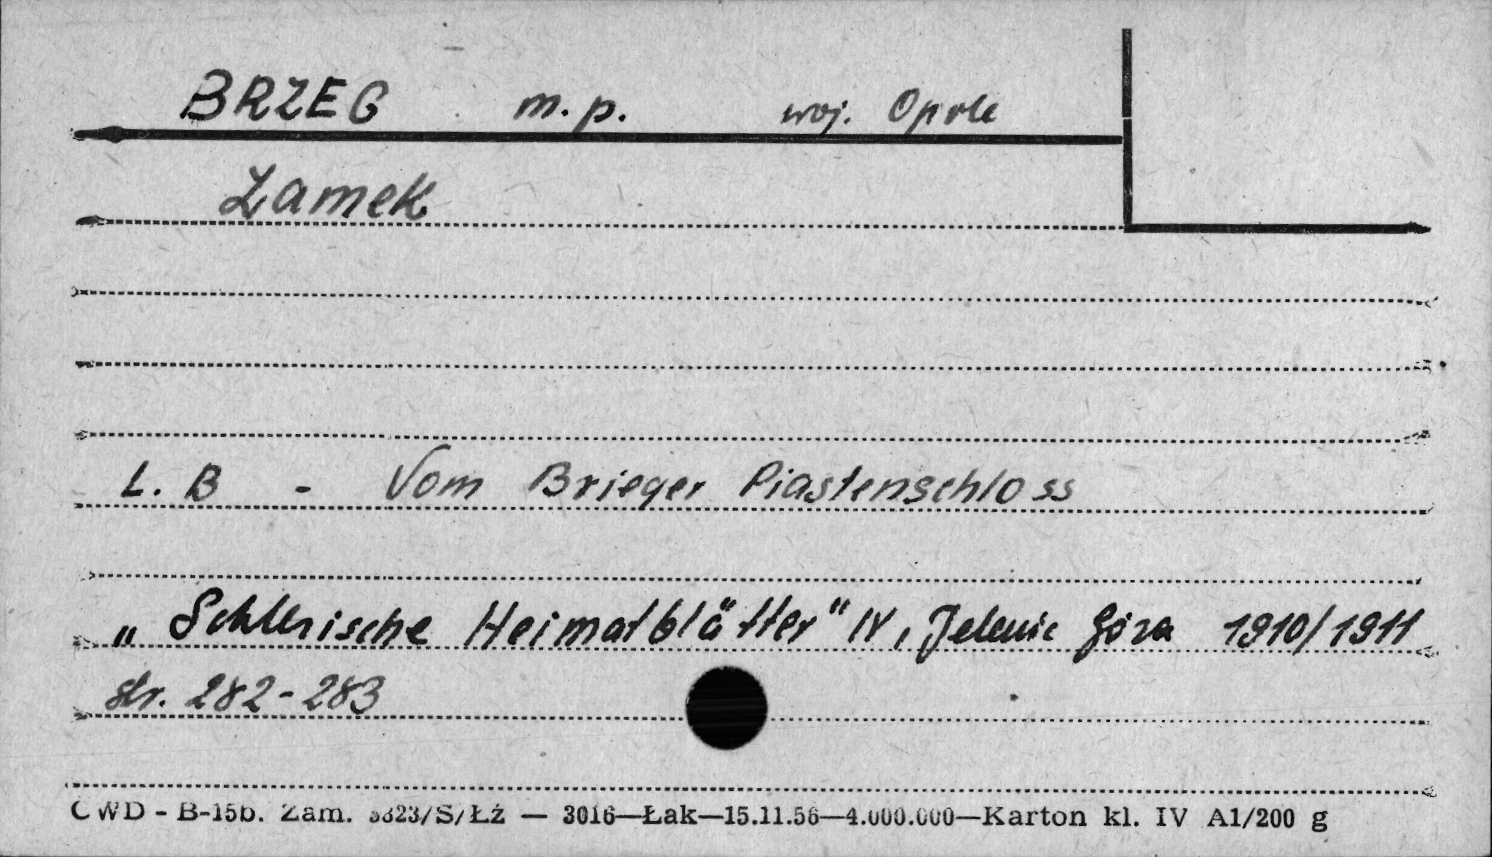 BRZEG m.p. woj. Opole
Zamek
L. B - Vom Brieger Piastenschloss
„Schlesische Heimatblätter" IV, Jelenia Góra 1910/1911
str. 282-283
CWD - B-15b. Zam. 3823/S/Łź — 3016—Łak—15.11.56—4.000.000—Karton kl. IV A1/200 g